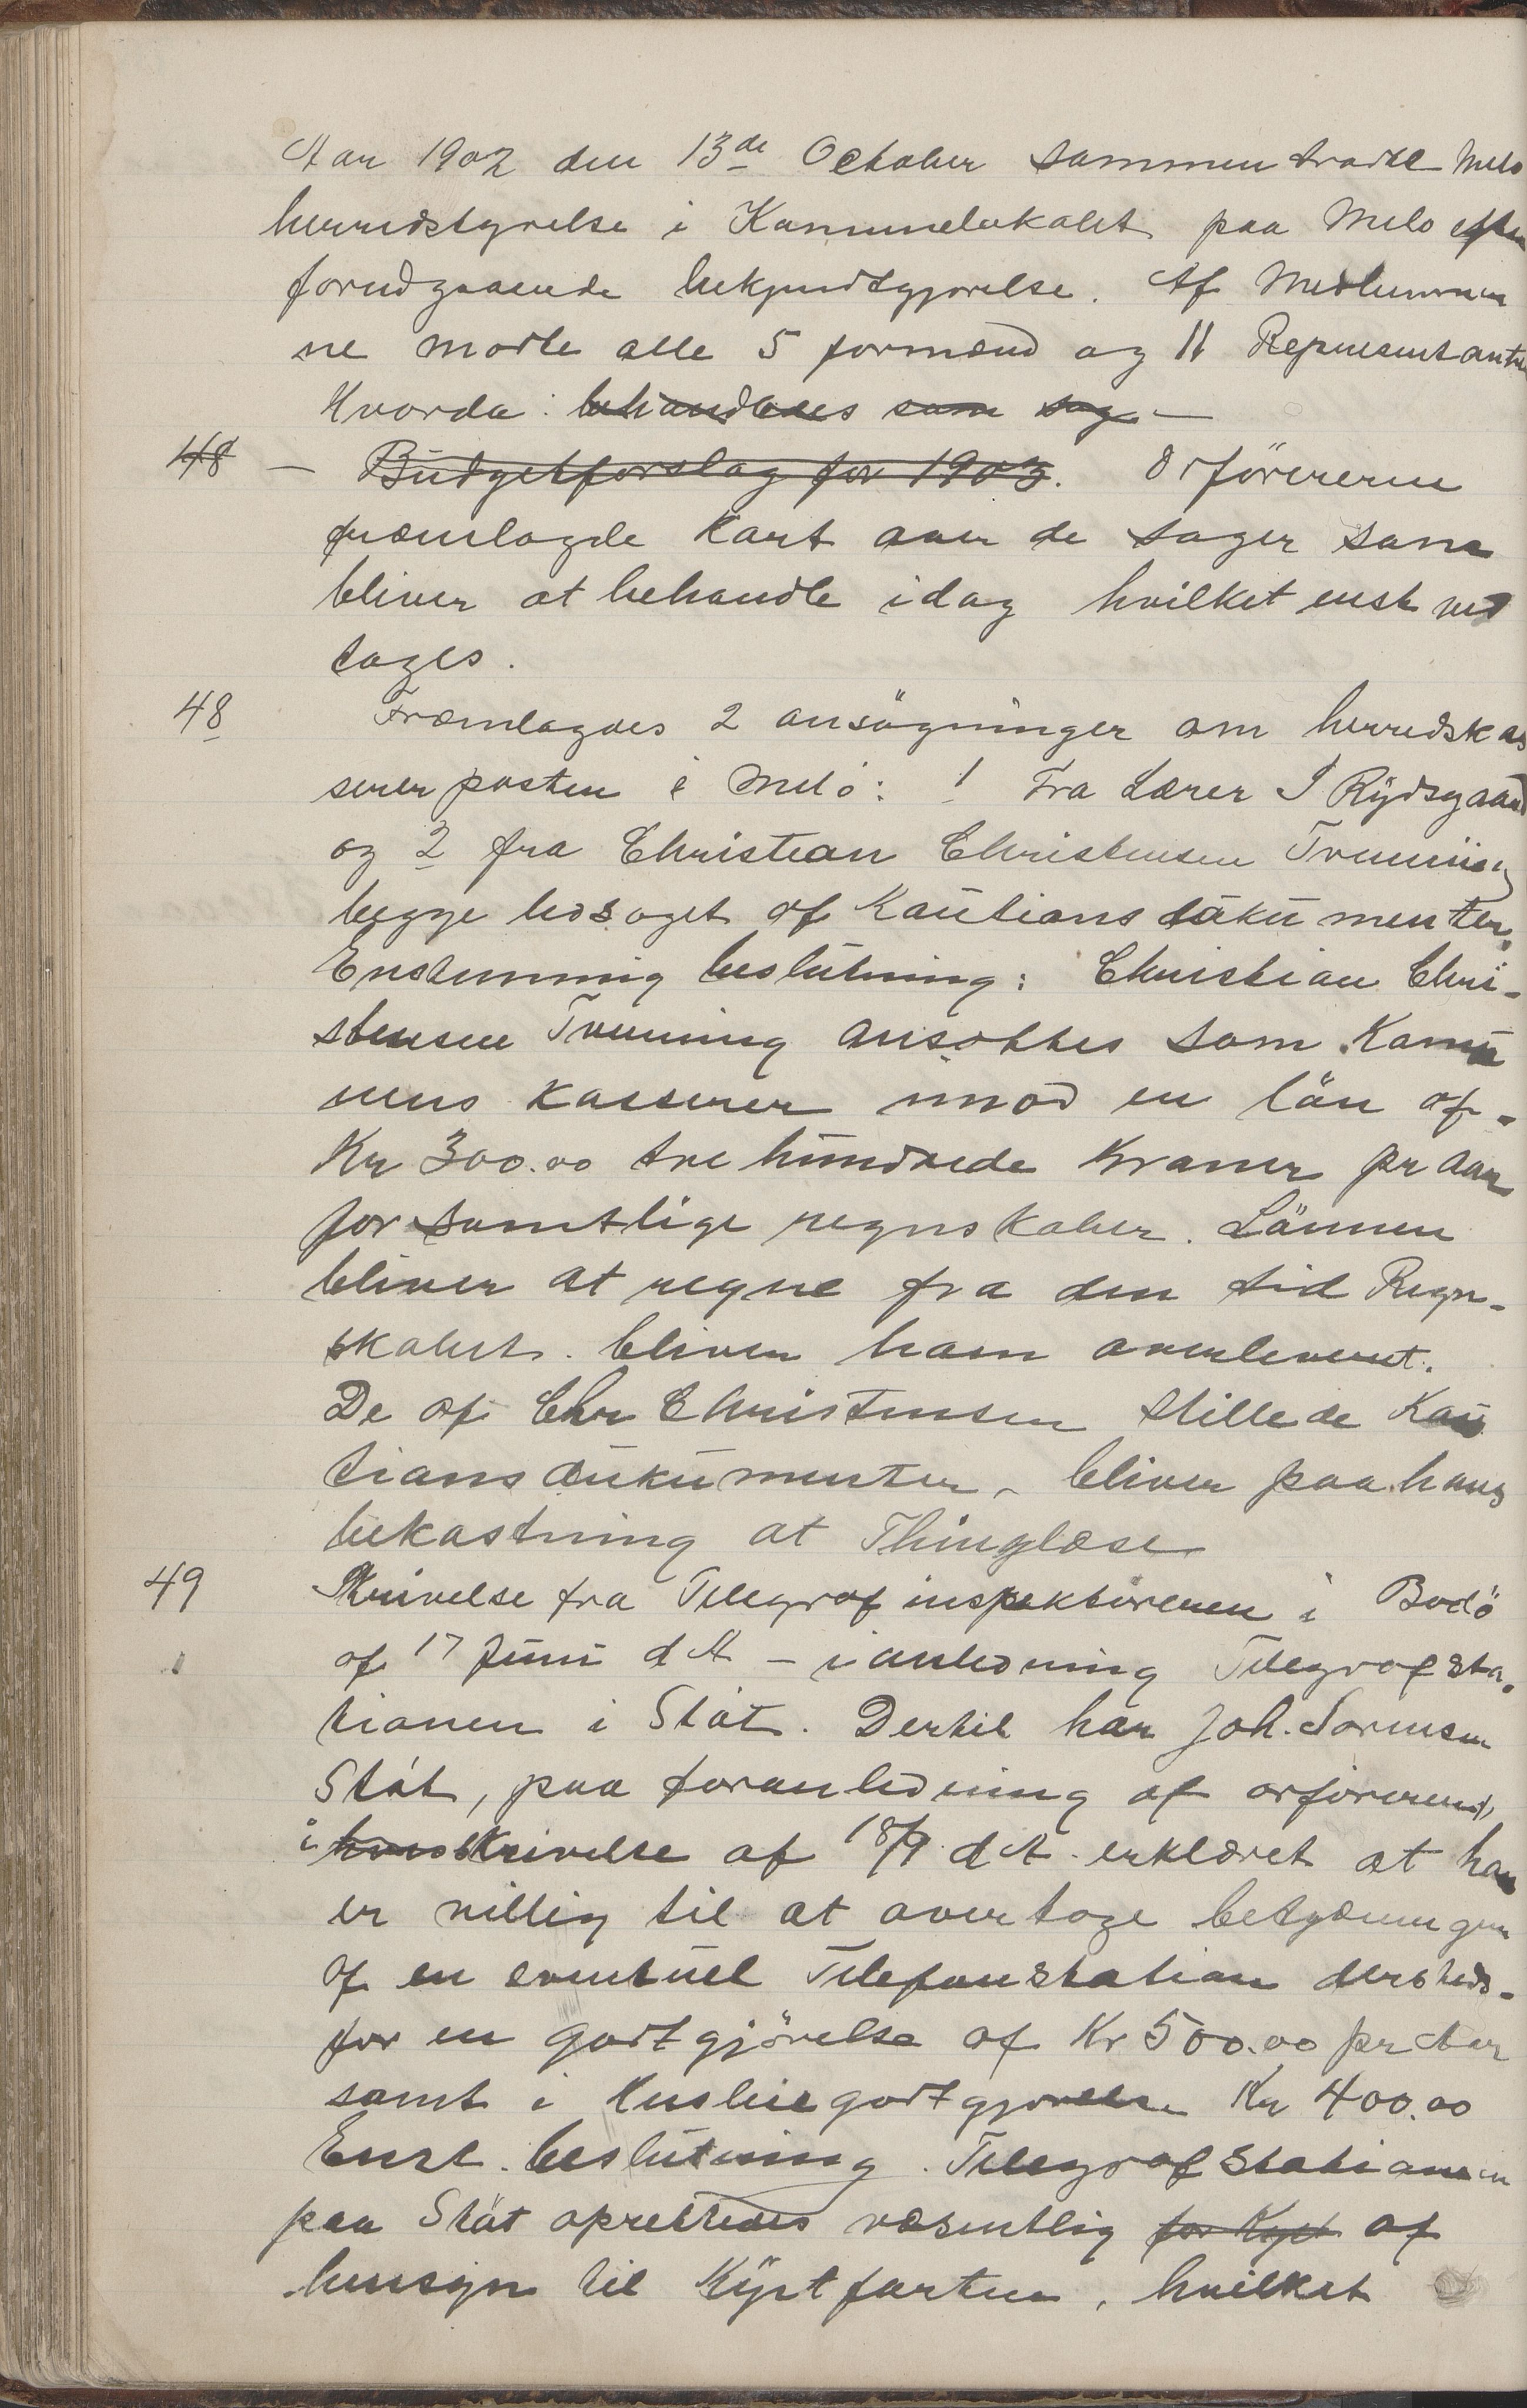 Aar 1902 den 13de October sammentraadte Melø
herredstyrelse i Kommunelokalet paa Melø efter
forudgaaende bekjendtgjørelse. Af Medlemmer
ne mødte alle 5 formænd og 11 Representanter
Hvorda: behandledes som sag –
48 – Budgetforslag for 1903. Ordføreren
fremlagde Kart over de sager som
bliver at behandle idag hvilket enst ved
tages.
48 Fræmlagdes 2 ansøgninger om herredskas
sererposten i Melø: 1 Fra Lærer I Rydsgaard
og 2 fra Christian Christensen Tvenning
begge ledsaget af Kautionsdokumenter.
Enstemmig beslutning: Christian Chri-
stensen Tvenning ansættes som Komu
nens Kasserer imod en løn af -
Kr 300.00 tre hundrede Kroner pr Aar
for samtlige regnskaber. Lønnen
bliver at regne fra den tid Regn-
skabet bliver ham overleveret.
De af Chr Christensen stillede Kau
tionsdokumenter bliver paa hans
bekostning at Thinglæse
49 Skrivelse fra Telegrafinspektøreren i Bodø
af 17 Juni d A – i anledning Telegrafsta-
tionen i Støt. Dertil har Joh. Sørensen
Støt, paa foranledning af ordføreren,
i hans skrivelse af 18/9 d A erklæret at han
er villig til at overtage betjeningen
af en eventuel Telefonstation dersteds -
for en godtgjørelse af Kr 500.00 pr Aar
samt i Husleiegodtgjørelse Kr 400.00
Enst. beslutning. Telegrafstationen
paa Støt oprettedes væsentlig for Kyst af
hensyn til Kystfarten, hvilket